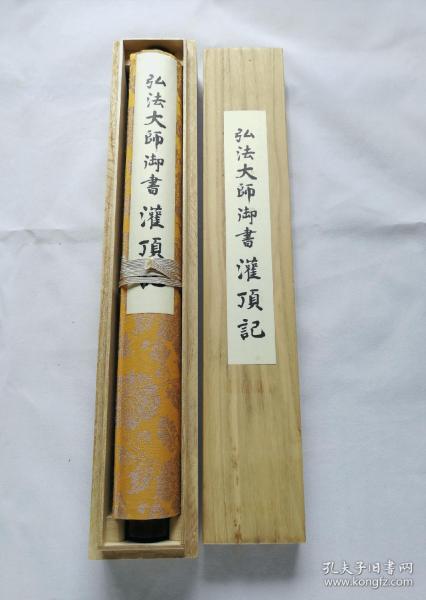 弘法大師御書 灌頂記
弘法大師御書 灌頂記
孔夫子旧书网
http://www.kongfz.com